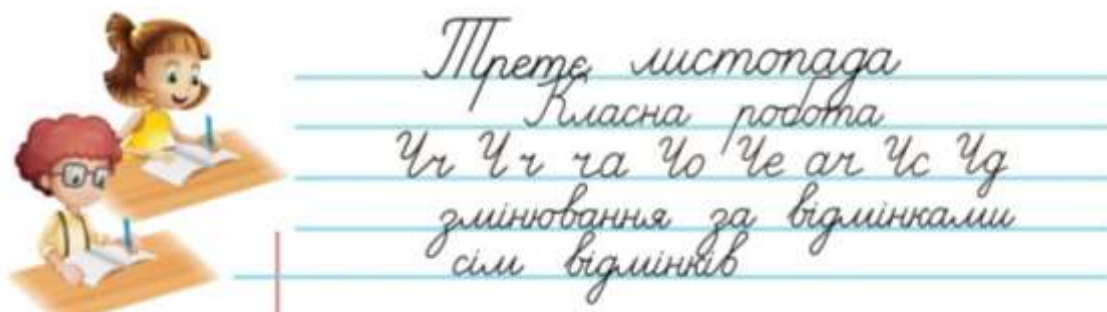 Третє листопада
Класна робота
Чч Ч ч ча Чо Че ач Чс Чд
змінювання за відмінками
сім відмінків